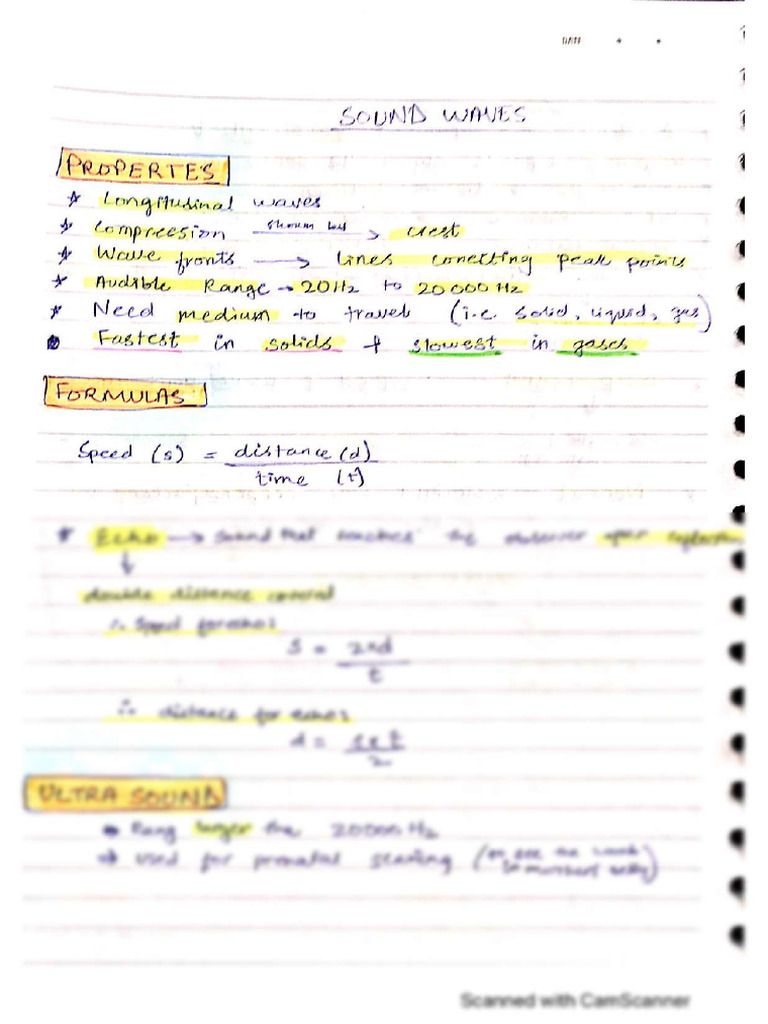 DATE
SOUND WAVES
PROPERTES
* Longitudinal waves
* Compreesion shown by → crest
* Wave fronts → lines conectting peak points
* Audible Range → 20Hz to 20000 Hz
* Need medium to travel (i.e. solid, liquid, gas)
Fastest in solids + slowest in gases
FORMULAS
Speed (s) = distance (d)
time (t)
* Echo → sound that reaches the observer upon
double distance coverd
∴ Speed for echos
S = 2xd
t
∴ distance for echos
d = s x t
2
ULTRA SOUND
Rang larger the 20000 Hz
→ used for prenatal
Scanned with CamScanner